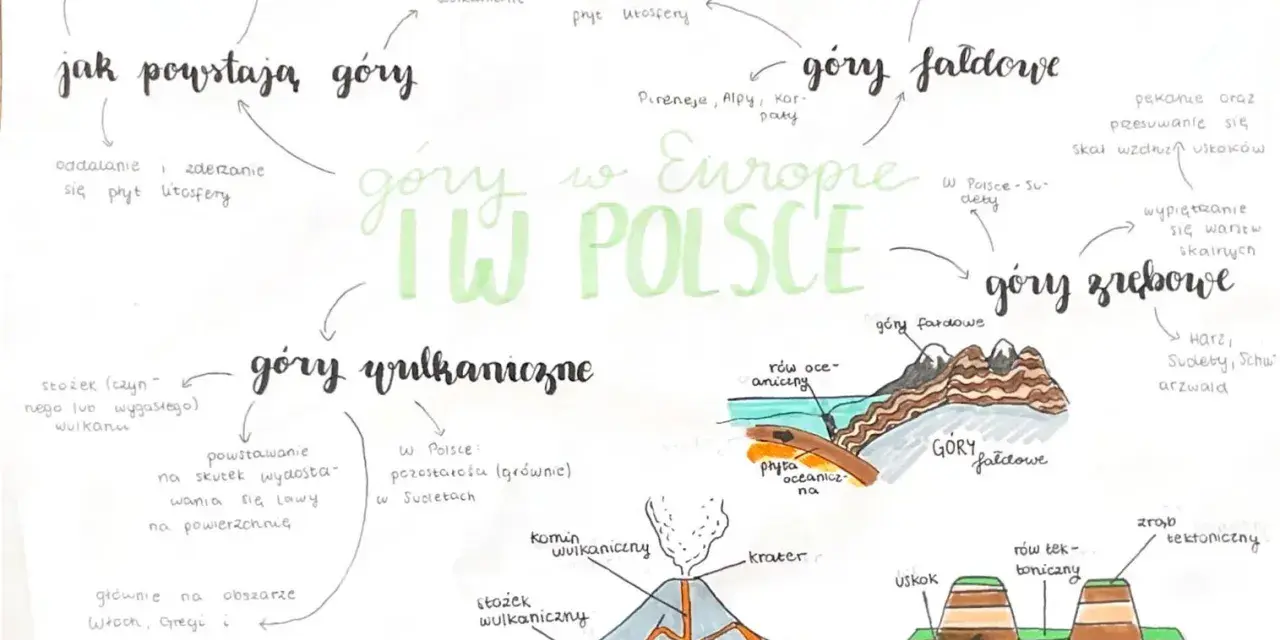 płyt litosfery
jak powstają góry
góry fałdowe
Pireneje, Alpy, Kar-
paty
pękanie oraz
przesuwanie się
skał wzdłuż uskoków
oddalanie i zderzanie
się płyt litosfery
góry w Europie
I W POLSCE
W Polsce - Su-
dety
wypiętrzanie
się warstw
skalnych
góry zrębowe
Harz,
Sudety, Schw
arzwald
góry wulkaniczne
stożek (czyn-
nego lub wygasłego)
wulkanu
powstawanie
na skutek wydosta-
wania się lawy
na powierzchnię
w Polsce:
pozostałości (głównie)
w Sudetach
głównie na obszarze
Włoch, Grecji i
góry fałdowe
rów oce-
aniczny
GÓRY
fałdowe
płyta
oceanicz-
na
komin
wulkaniczny
krater
stożek
wulkaniczny
zrąb
tektoniczny
rów tek-
toniczny
uskok